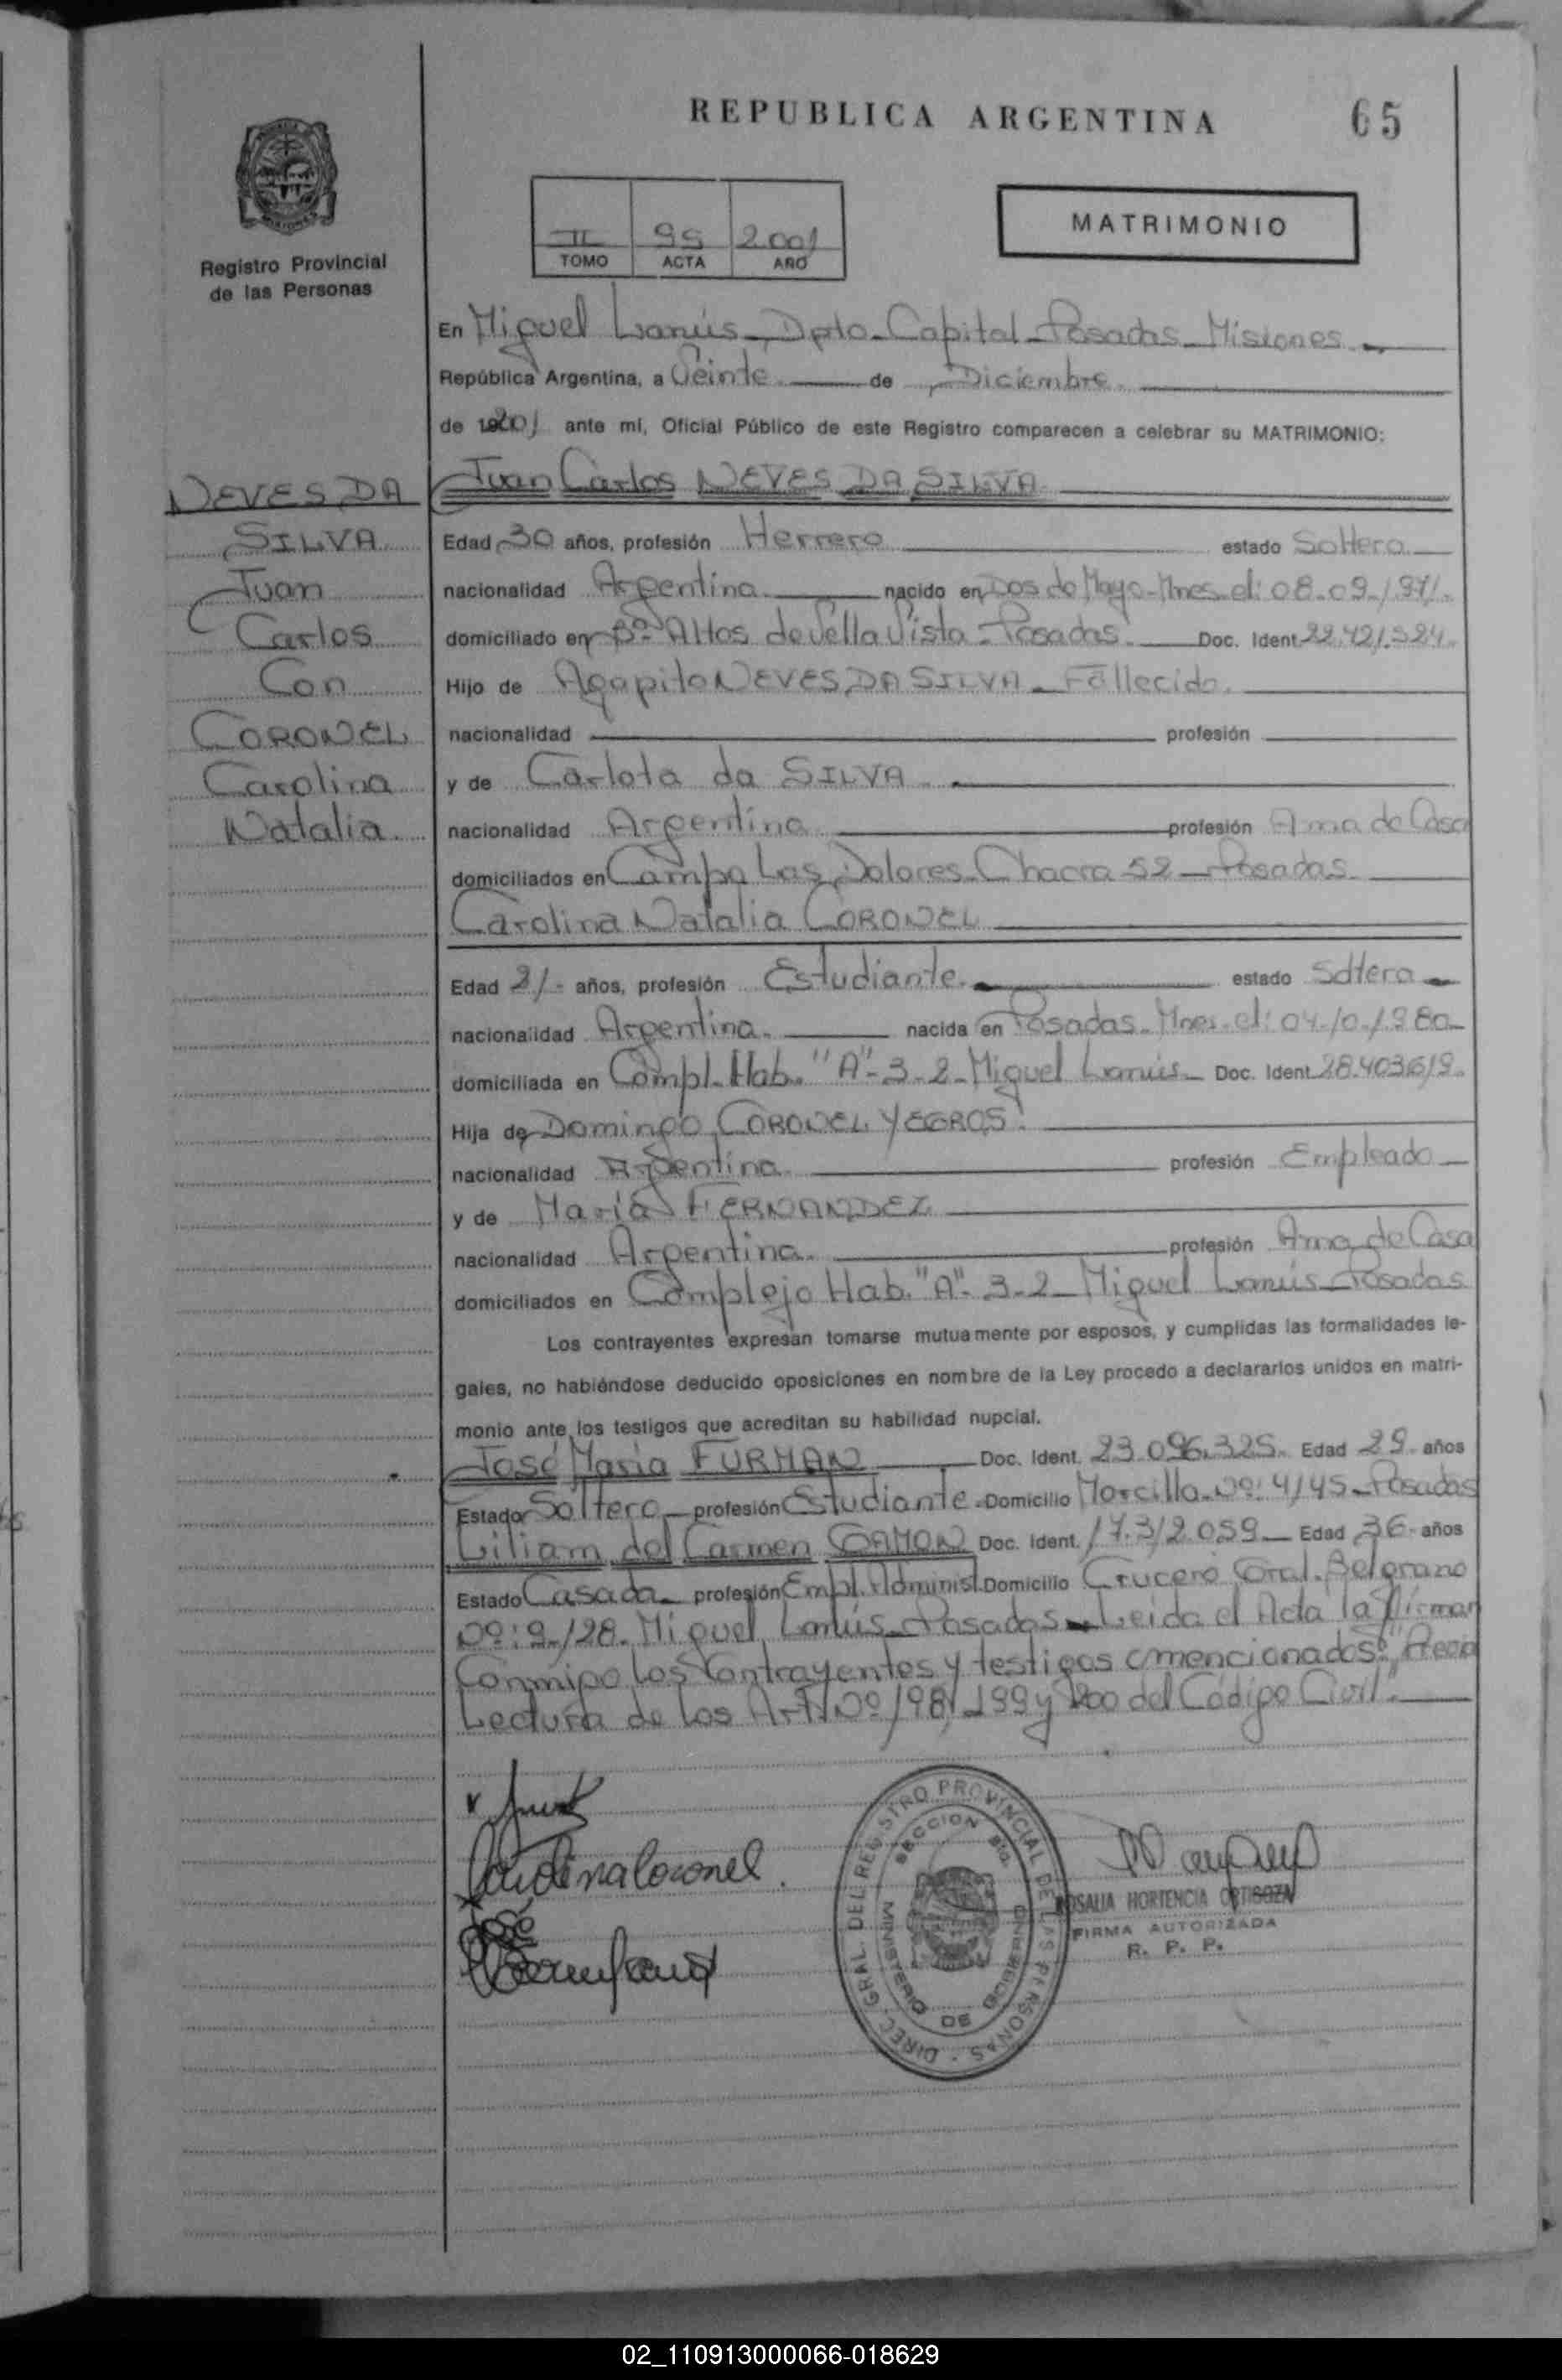 REPUBLICA ARGENTINA
65
MATRIMONIO
II 95 2001
TOMO ACTA AÑO
Registro Provincial
de las Personas
En Miguel Lanús - Dpto - Capital - Posadas - Misiones
República Argentina, a Veinte de Diciembre
de 2001 ante mi, Oficial Público de este Registro comparecen a celebrar su MATRIMONIO:
NEVES DA
SILVA
Juan
Carlos
Con
CORONEL
Carolina
Natalia
Juan Carlos NEVES DA SILVA
Edad 30 años, profesión Herrero estado Soltero
nacionalidad Argentina nacido en Dos de Mayo - Mnes - el: 08-09-1971.
domiciliado en Bº Altos de Bella Vista - Posadas Doc. Ident. 22.421.524.
Hijo de Agapito NEVES DA SILVA - Fallecido.
nacionalidad profesión
y de Carlota da SILVA
nacionalidad Argentina profesión Ama de Casa
domiciliados en Campo Las Dolores - Chacra 52 - Posadas
Carolina Natalia CORONEL
Edad 21- años, profesión Estudiante. estado Soltera
nacionalidad Argentina. nacida en Posadas - Mnes - el: 04-10-1980
domiciliada en Compl. Hab. "A" - 3 - 2 - Miguel Lanús - Doc. Ident. 28.403.619.
Hija de Domingo CORONEL YEGROS.
nacionalidad Argentina profesión Empleado
y de María FERNANDEZ
nacionalidad Argentina. profesión Ama de Casa
domiciliados en Complejo Hab. "A" - 3 - 2 - Miguel Lanús - Posadas
Los contrayentes expresan tomarse mutuamente por esposos, y cumplidas las formalidades le-
gales, no habiéndose deducido oposiciones en nombre de la Ley procedo a declararlos unidos en matri-
monio ante los testigos que acreditan su habilidad nupcial.
José María FURMAN Doc. Ident. 23.096.325. Edad 29. años
Estado Soltero profesión Estudiante - Domicilio Morcillo - Nº: 4145 - Posadas
Liliam del Carmen GAMON Doc. Ident. 17.312.059 Edad 36- años
Estado Casada profesión Empl. Administ. Domicilio Crucero Gral. Belgrano
Nº: 9.128. Miguel Lanús - Posadas - Leida el Acta la firman
Conmigo los Contrayentes y testigos mencionados: "Previa
Lectura de los Art. Nº 198, 199 y 200 del Código Civil".
Carolina Coronel.
José
DIREC. GRAL. DEL REGISTRO PROVINCIAL DE LAS PERSONAS
SECCION
MINISTERIO DE GOBIERNO
ROSALIA HORTENCIA ORTIGOZA
FIRMA AUTORIZADA
R. P. P.
02_110913000066-018629